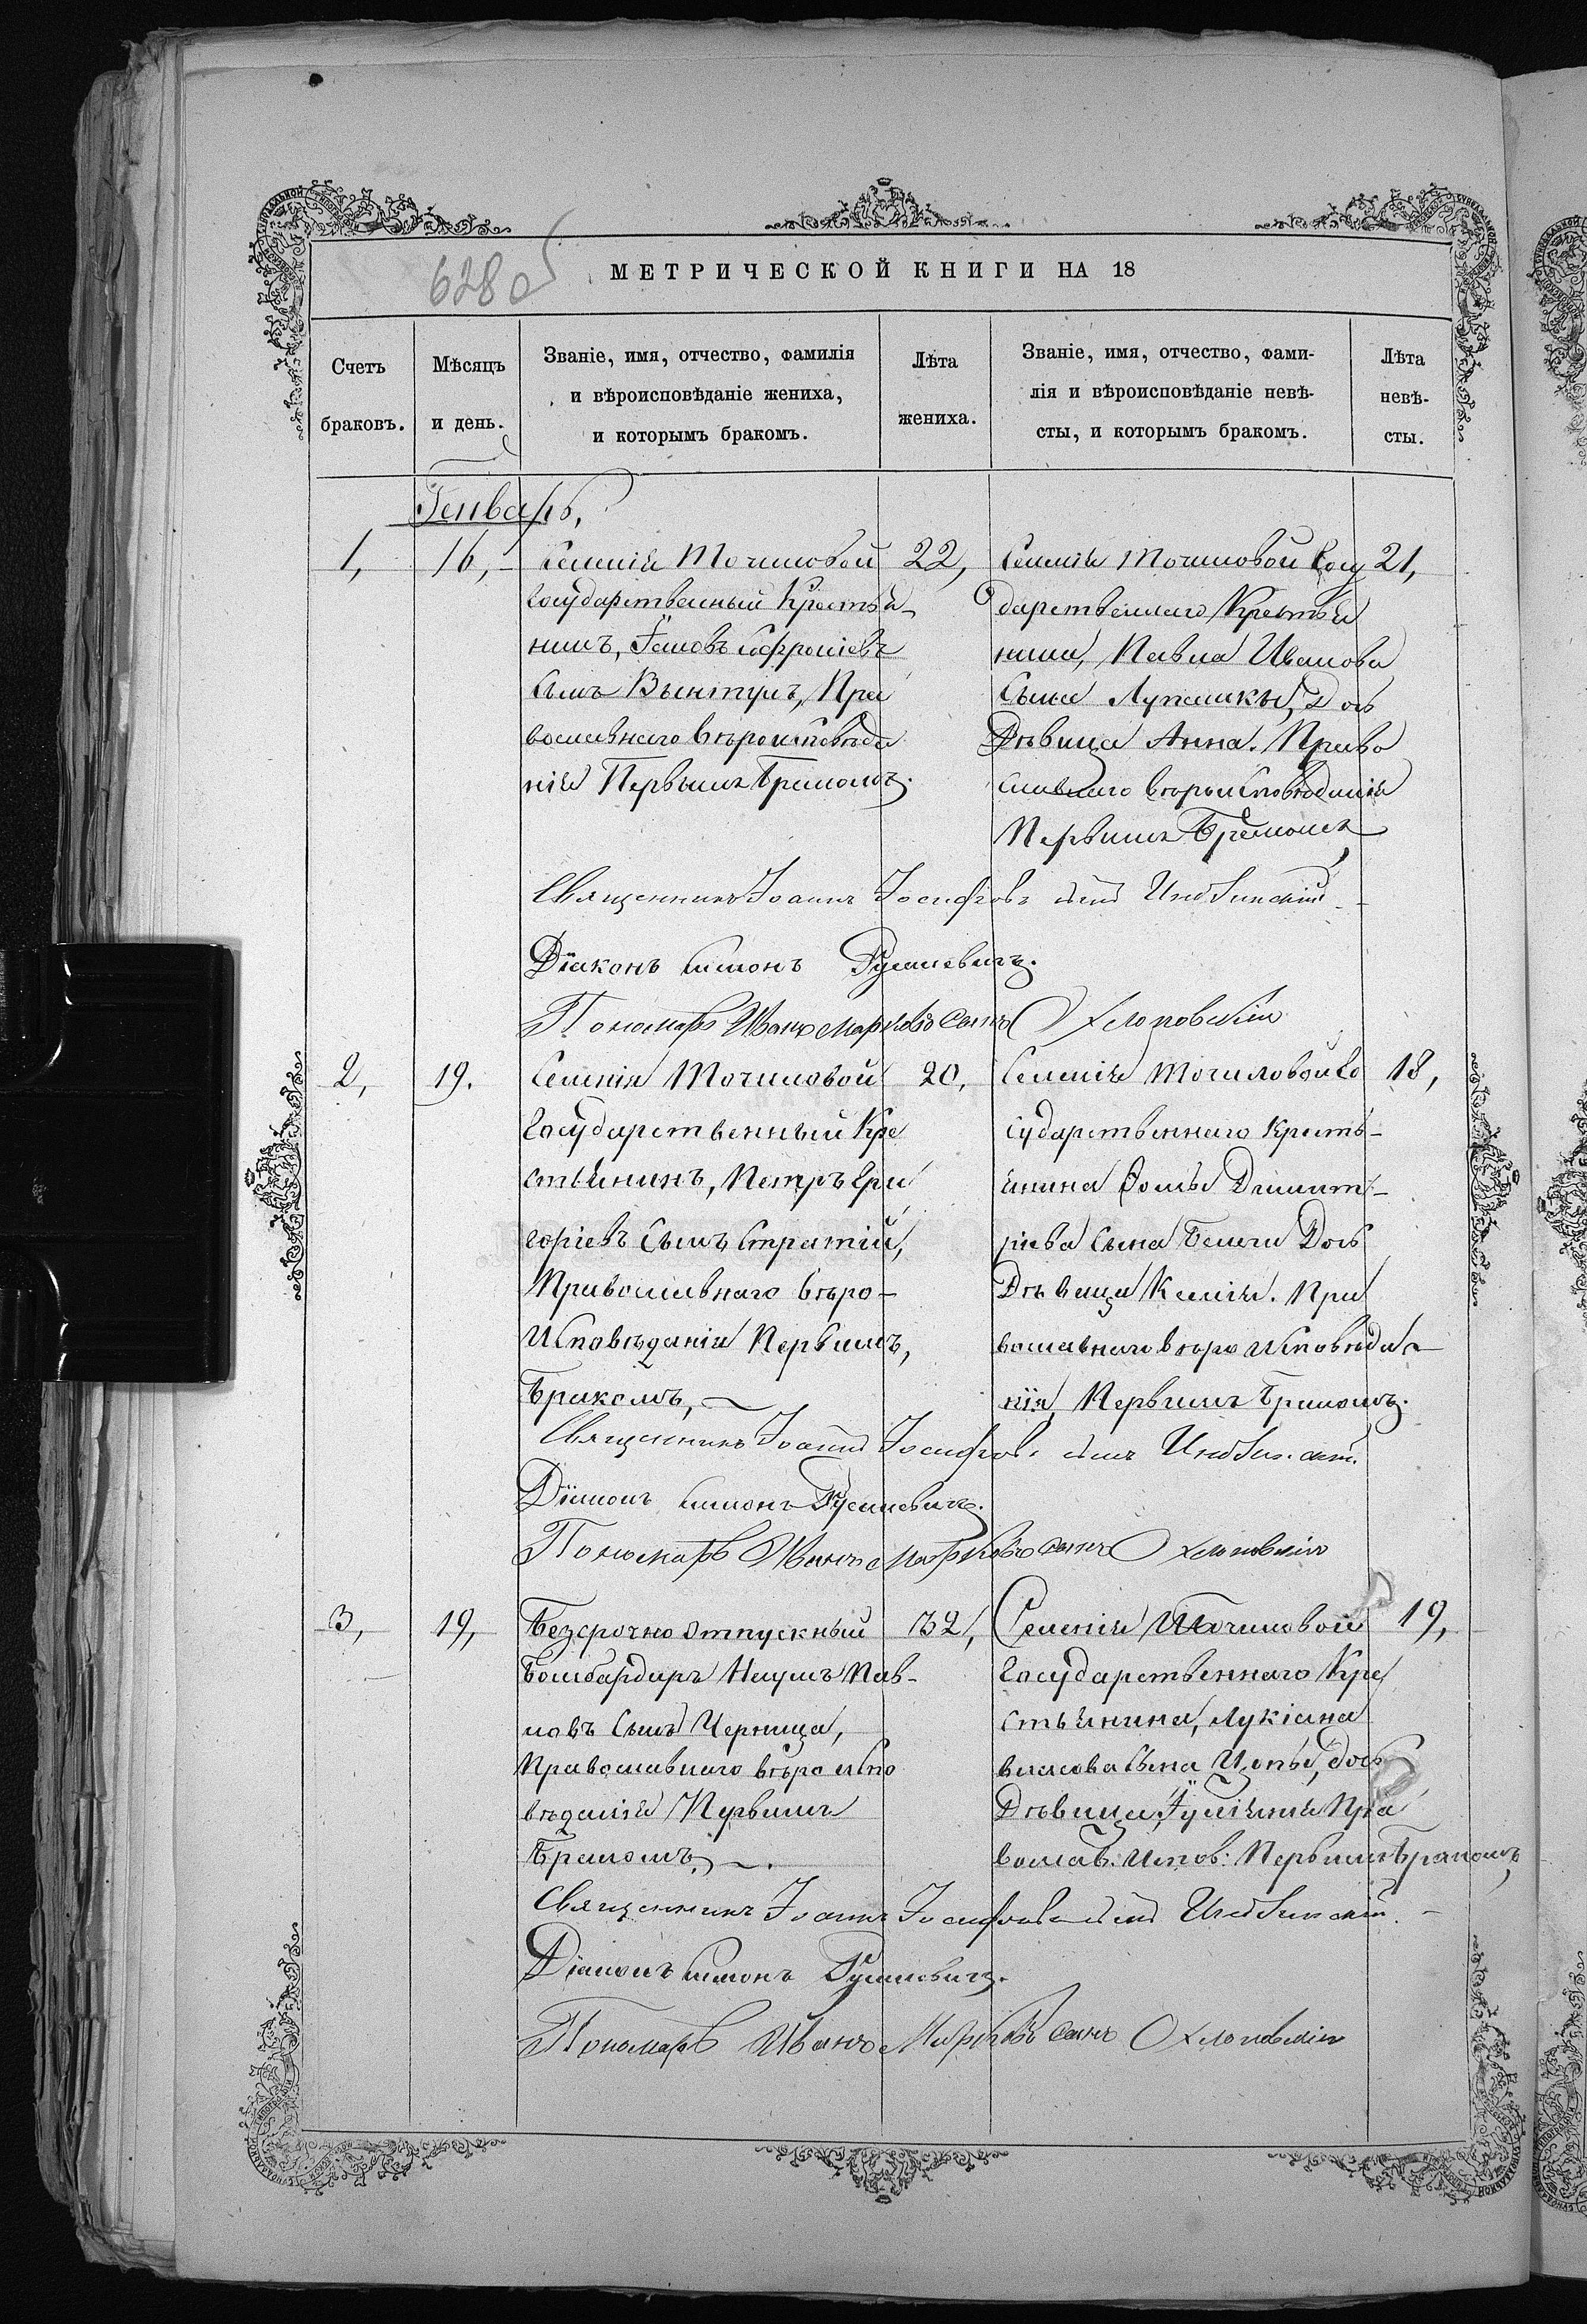 628 об
МЕТРИЧЕСКОЙ КНИГИ НА 18
Счетъ браковъ.
Мѣсяцъ и день.
Званіе, имя, отчество, фамилія
и вѣроисповѣданіе жениха,
и которымъ бракомъ.
Лѣта жениха.
Званіе, имя, отчество, фами-
лія и вѣроисповѣданіе невѣ-
сты, и которымъ бракомъ.
Лѣта невѣ-
сты.
Генварь,
1, 16,
Селенія Точиловой
государственный Крестья
нинъ,
сынъ Вынтулъ, Пра
вославнаго вѣроисповѣда
нія Первымъ Бракомъ.
22,
Селенія Точиловой Госу
дарственнаго Крестья
нина, Павла Иванова
Сына Лупашкы, Дочь
Дѣвица Анна. Право
славнаго вѣроисповѣданія
Первымъ Бракомъ
21,
Священникъ Іоаннъ Іосифовъ сынъ
Діаконъ Симонъ
Пономарь Иванъ Марковъ сынъ
2, 19.
Селенія Точиловой
Государственный Кре
стьянинъ, Петръ Гри
горіевъ Сынъ Стратій,
Православнаго вѣро-
Исповѣданія Первымъ,
Бракомъ,
20,
Селенія Точиловой Го
сударственнаго Кресть-
янина Фомы Димит-
ріева Сына Дочь
Дѣвица Ксенія. Пра
вославнаго вѣро Исповѣда
нія, Первымъ Бракомъ.
18,
Священникъ Іоаннъ Іосифовъ сынъ
Діаконъ Симонъ
Пономарь Иванъ Марковъ сынъ
3, 19,
Безсрочно отпускный
Бомбардиръ Наумъ Пав-
ловъ Сынъ Черница,
Православнаго вѣро испо
вѣданія Первымъ
Бракомъ,
32,
Селенія Точиловой
Государственнаго Кре
стьянина, Лукіана
Власова Сына Цопы, дочь
Дѣвица, Іуліанія Пра
вослав. Испов: Первымъ Бракомъ,
19,
Священникъ Іоаннъ Іосифовъ сынъ
Діаконъ Симонъ
Пономарь Иванъ Марковъ сынъ